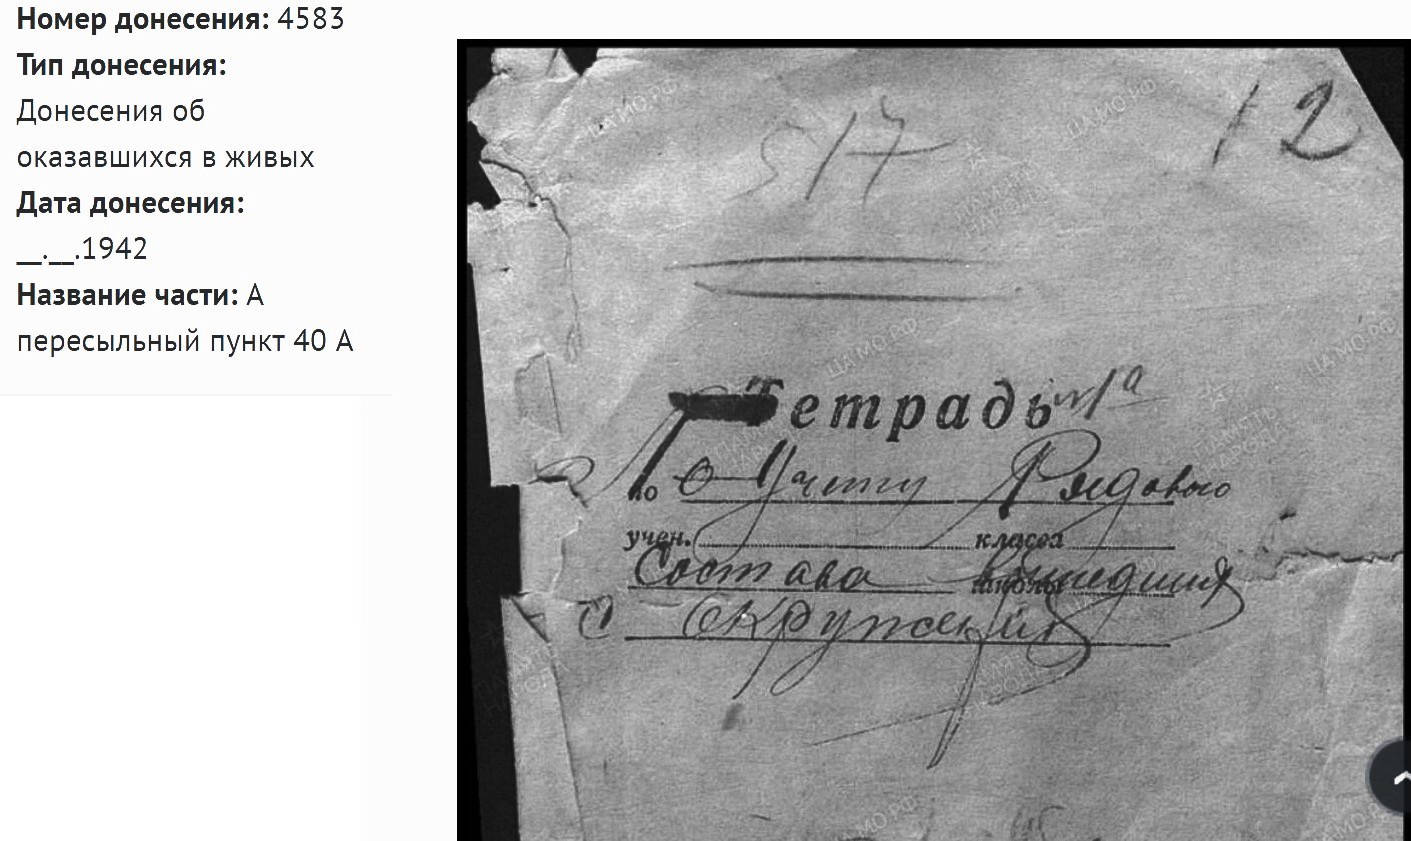 Номер донесения: 4583
Тип донесения:
Донесения об
оказавшихся в живых
Дата донесения:
__.__.1942
Название части: А
пересыльный пункт 40 А
517
12
Тетрадь №1а
по Учету Рядового
учен. класса
Состава вышедшия
школы
С Окружения
ЦА МО РФ
ПАМЯТЬ НАРОДА